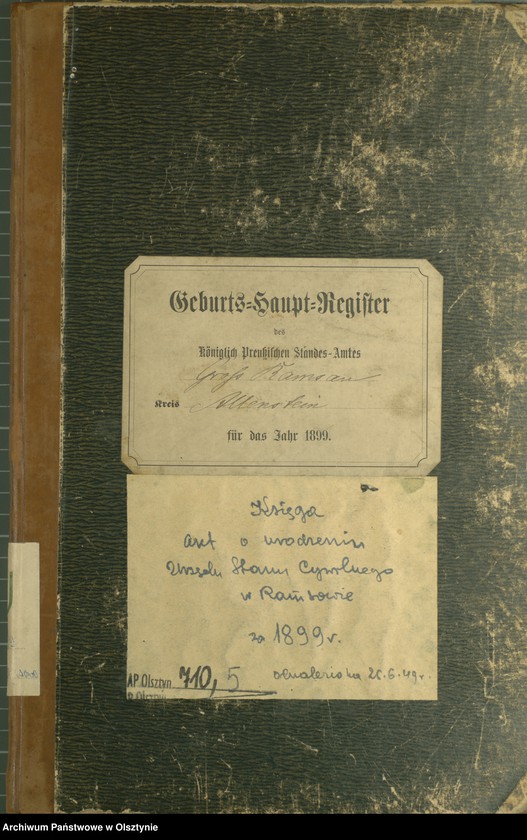 Geburts-Haupt-Register
des
Königlich Preußischen Standes-Amtes
Groß Ramsau
Kreis Allenstein
für das Jahr 1899.
Księga
akt o urodzeniu
Urzędu Stanu Cywilnego
w Ramsowie
za 1899 r.
odnaleziona 25.6.49 r.
AP Olsztyn 710, 5
Archiwum Państwowe w Olsztynie